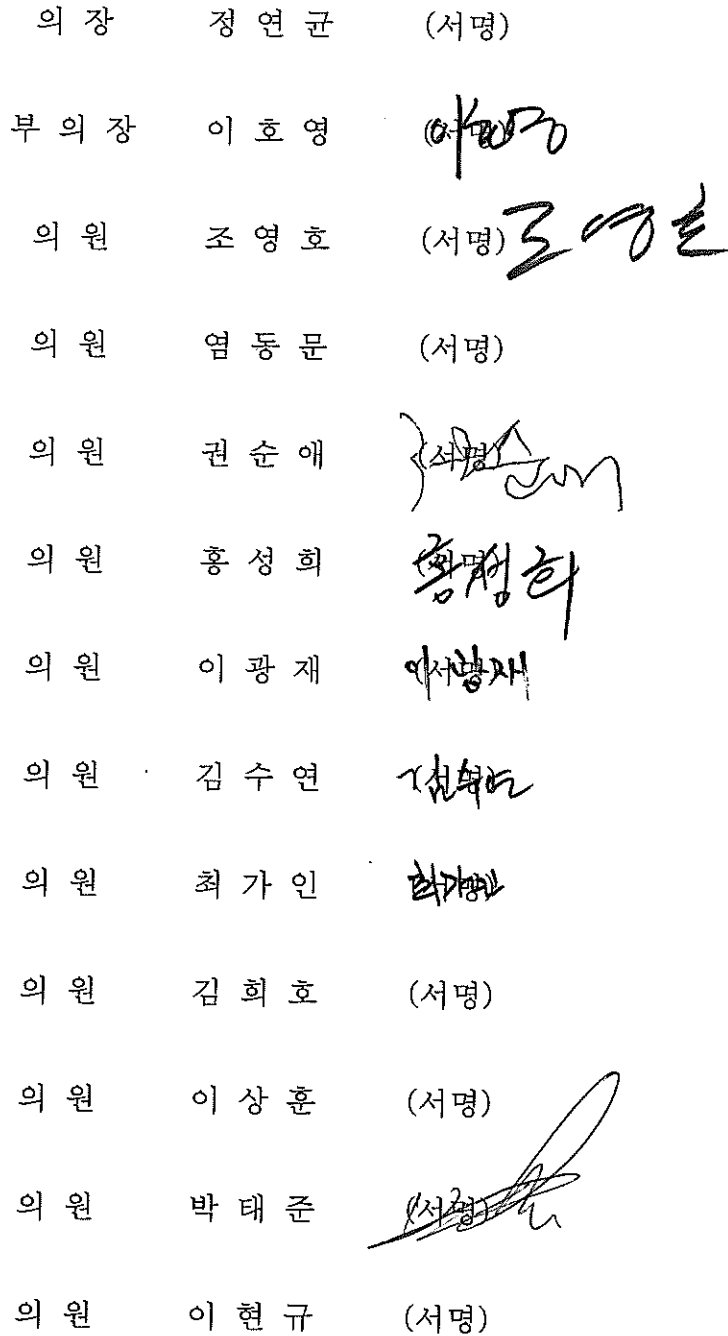 의 장 정 연 균 (서명)
부 의 장 이 호 영 (서명) 이호영
의 원 조 영 호 (서명) 조영호
의 원 염 동 문 (서명)
의 원 권 순 애 (서명) 권순애
의 원 홍 성 희 (서명) 홍성희
의 원 이 광 재 (서명) 이광재
의 원 김 수 연 (서명) 김수연
의 원 최 가 인 (서명) 최가인
의 원 김 희 호 (서명)
의 원 이 상 훈 (서명)
의 원 박 태 준 (서명)
의 원 이 현 규 (서명)